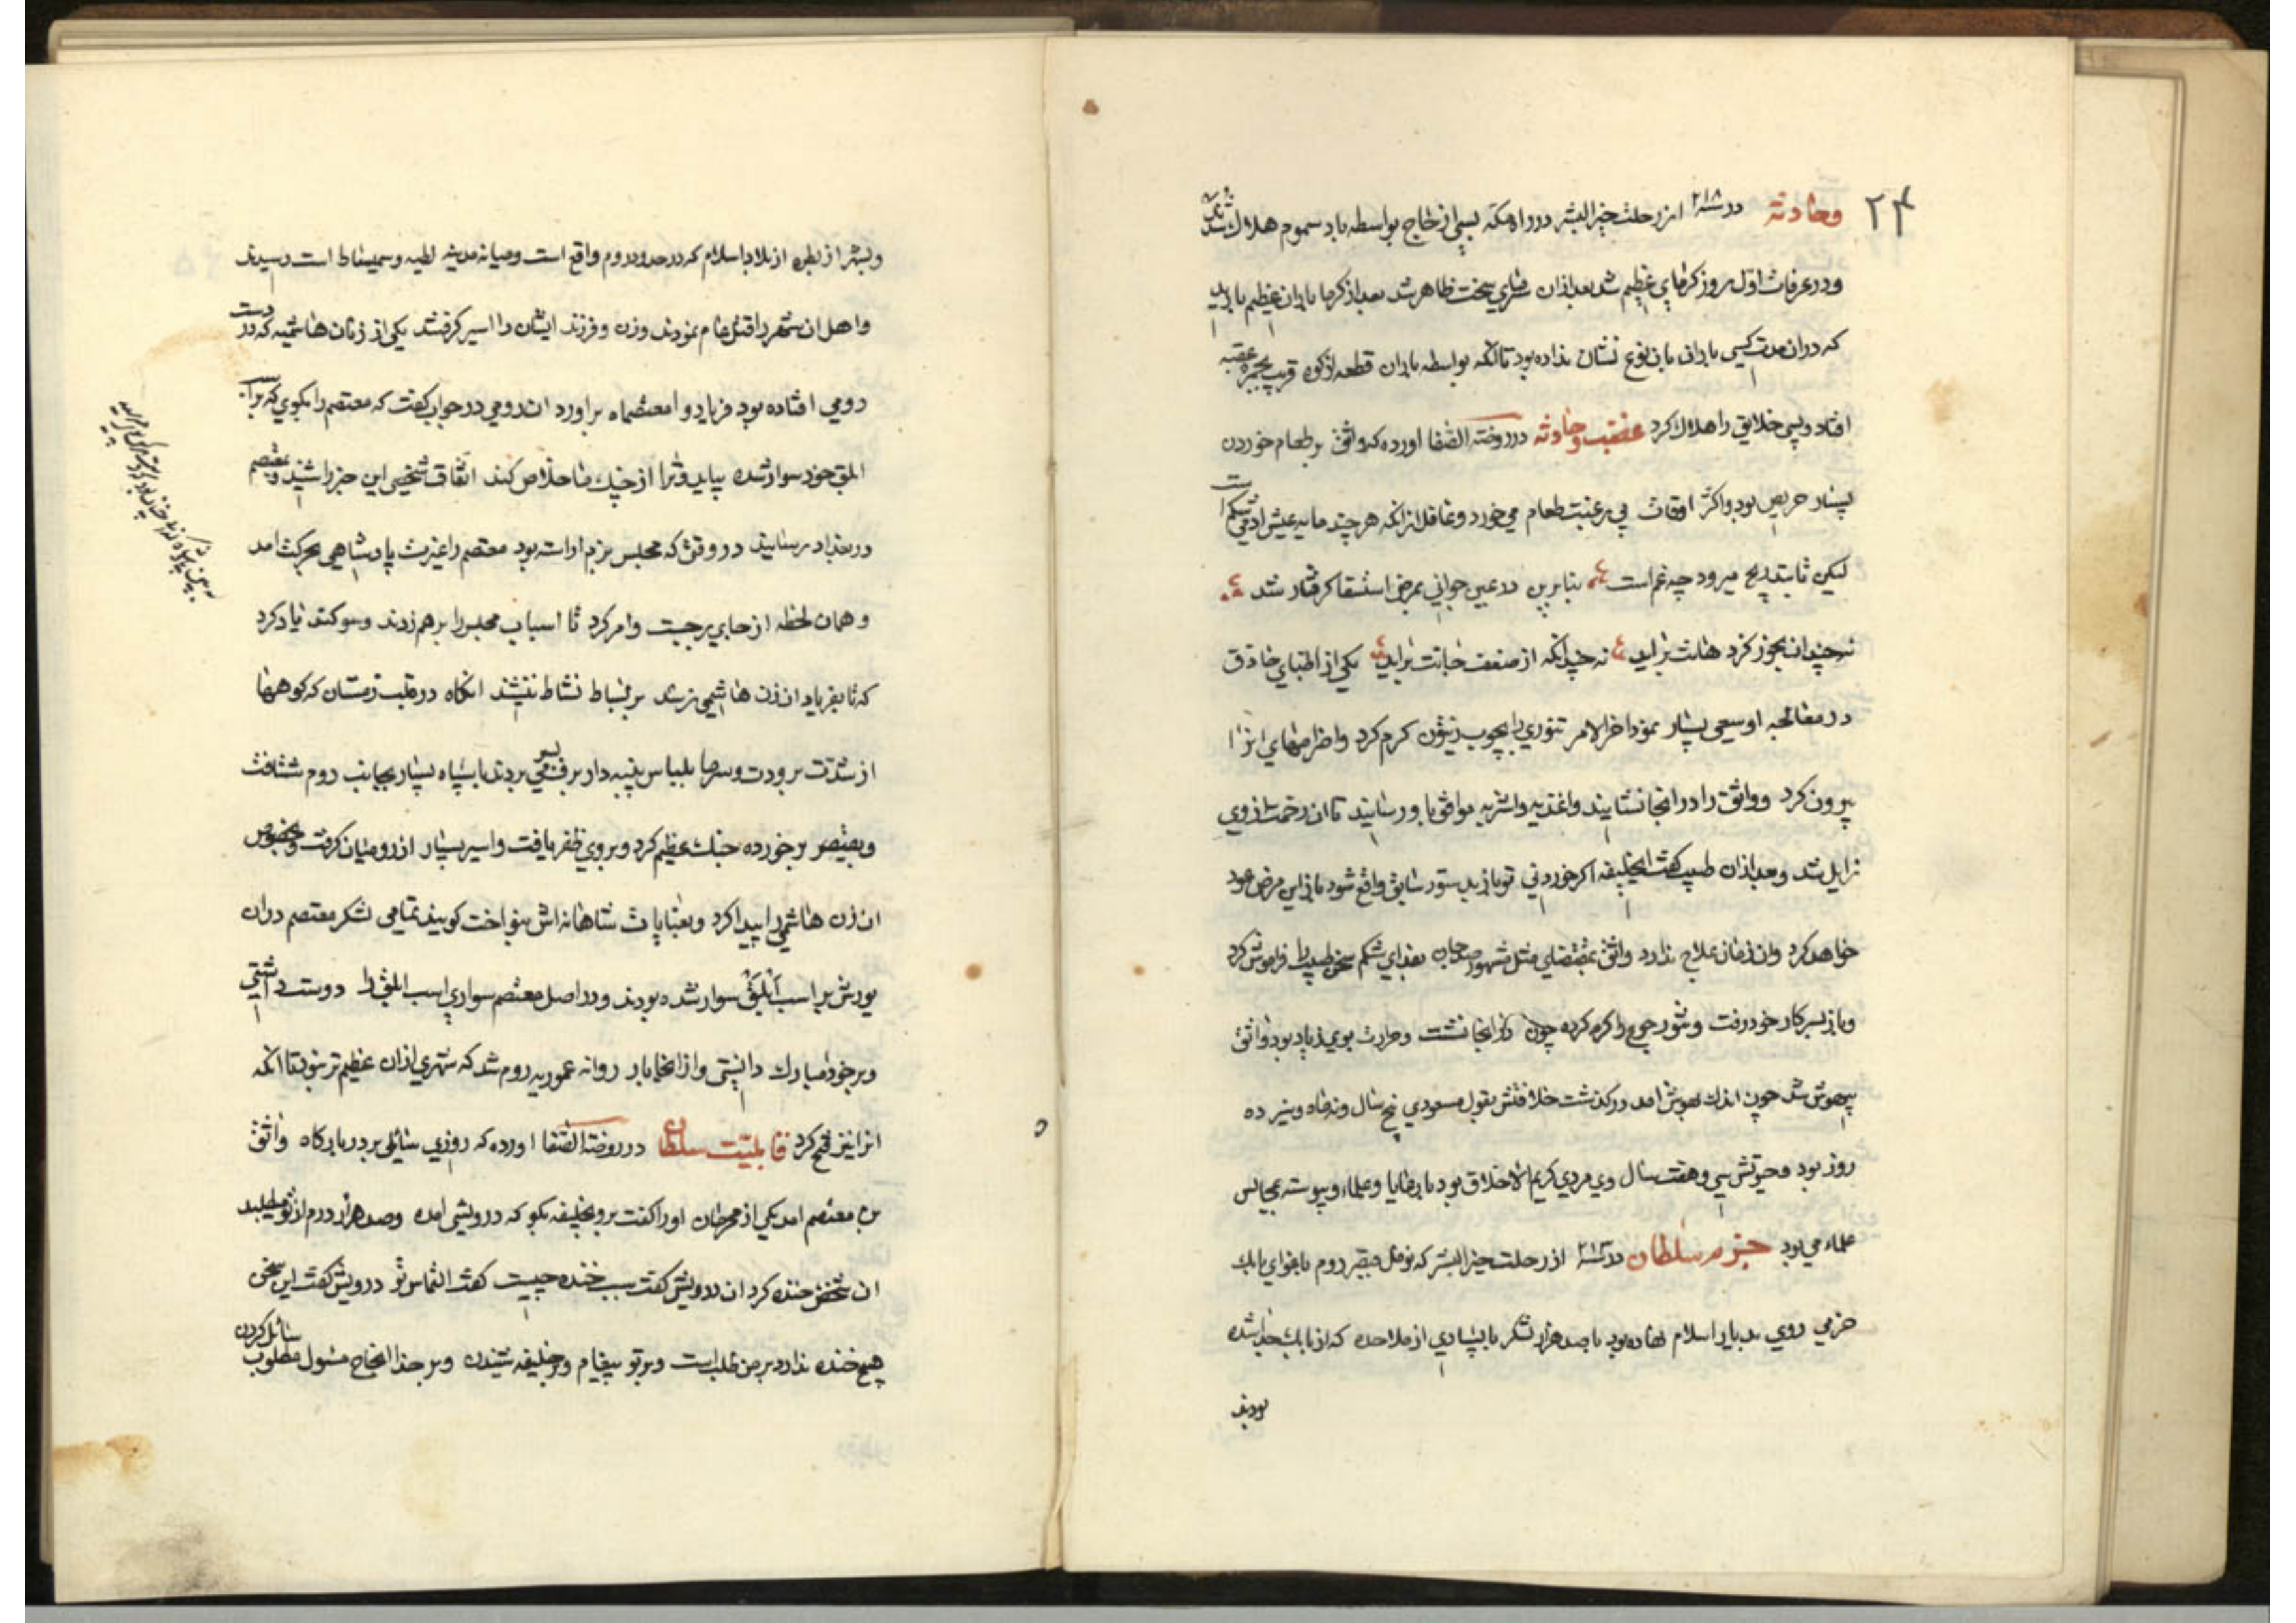 ۲۴
وحادثه در سنه ۲۱۸ از رحلت خیر البشر در راه مکه بسی از حاج بواسطه باد سموم هلاک شدند
و در عرفات اول روز کرمای عظیم شد بعد از ان سرمای سخت ظاهر شد بعد از کرما باران عظیم بارید
که در ان مدت کسی باران بان نوع نشان نداده بود تا انکه بواسطه باران قطعه از کوه قریب بجمره عقبه
افتاد وبسی خلایق را هلاک کرد وحادثه در روضة الصفا اورده که واثق بر طعام خوردن
بسیار حریص بود واکثر اوقات بی رغبت طعام می خورد وغافل از انکه هر چند مایه عیش ادمی شکم است
لیکن تا بتدریج میرود چه غم است ع بنابرین در عین جوانی بمرض استسقا کرفتار شد ع
نه چندان بخور کز دهانت براید ع نه چندانکه از ضعف جانت براید ع یکی از اطبای حاذق
در معالجه او سعی بسیار نمود اخر الامر تنوری را بچوب زیتون کرم کرد واخرهای انرا
بیرون کرد وواثق را در انجا نشانید واغذیه واشربه موافق باو رسانید تا ان زحمت از وی
زایل شد وبعد از ان طبیب کفت ایخلیفه اکر خوردنی تو باز بدستور سابق واقع شود باز این مرض عود
خواهد کرد وان زمان علاج ندارد واثق بمقتضای مثل مشهور بعد از شکم سخن طبیب را فراموش کرد
وباز بسر کار خود رفت وتنور را کرم کرده چون در انجا نشست وحرارت بوی زیاد بود واثق
بیهوش شد چون اندک بهوش امد درکذشت خلافتش بقول مسعودی پنج سال ونه ماه وسیزده
روز بود وحیوتش سی وهفت سال وی مردی کریم الاخلاق بود با رعایا وعلماء وپیوسته بمجالس
علماء می بود سلطان در سنه از رحلت خیر البشر که نوفل قیصر روم باغوای بابک
خرمی روی ببلاد اسلام نهاده بود با صد هزار لشکر با بسیاری از ملاحده که از بابک جدا شده
بودند
وبشهر از بطره از بلاد اسلام که در حدود روم واقع است ومیانه مدینه لطیه وسمیساط است رسیدند
واهل ان شهر را قتل عام نمودند وزن وفرزند ایشان را اسیر کرفتند یکی از زنان هاشمیه که در دست
رومی افتاده بود فریاد وا معتصماه براورد ان رومی در جواب کفت که معتصم را بکوی که بر اسب
ابلق خود سوار شده بیاید وترا از چنک ما خلاص کند اتفاق شخصی این خبر را شنید ومعتصم
در بغداد رسانید در وقتی که مجلس بزم اراسته بود معتصم را غیرت پادشاهی بحرکت امد
وهمان لحظه از جای برجست وامر کرد تا اسباب مجلس را برهم زدند وسوکند یاد کرد
که تا بفریاد ان زن هاشمی نرسد بر بساط نشاط ننشیند انکاه در قلب زمستان که کوهها
از شدت برودت وسرما بلباس پنبه دار برف بسر می بردند با سپاه بسیار بجانب روم شتافت
وبقیصر برخورده جنک عظیم کرد وبر وی ظفر یافت واسیر بسیار از رومیان کرفت وبخصوص
ان زن هاشمی را پیدا کرد وبعنایات شاهانه اش بنواخت کویند تمامی لشکر معتصم در ان
یورش بر اسب ابلق سوار شده بودند ودر اصل معتصم سواری اسب ابلق را دوست داشتی
وبر خود مبارک دانستی واز انجا باز روانه عموریه روم شد که شهری از ان عظیم تر نبود تا انکه
انرا نیز فتح کرد قابلیت سلطان در روضة الصفا اورده که روزی سائلی بر در بارکاه واثق
بن معتصم امد یکی از محرمان اورا کفت برو بخلیفه بکو که درویشی امده وصد هزار درم از تو میطلبد
ان شخص خنده کرد ان درویش کفت سبب خنده چیست کفت التماس تو درویش کفت این سخن
هیچ خنده ندارد بر من طلب است وبر تو پیغام وبر خلیفه شنیدن وبر خدا انجاح مسئول مطلوب سائل کردن